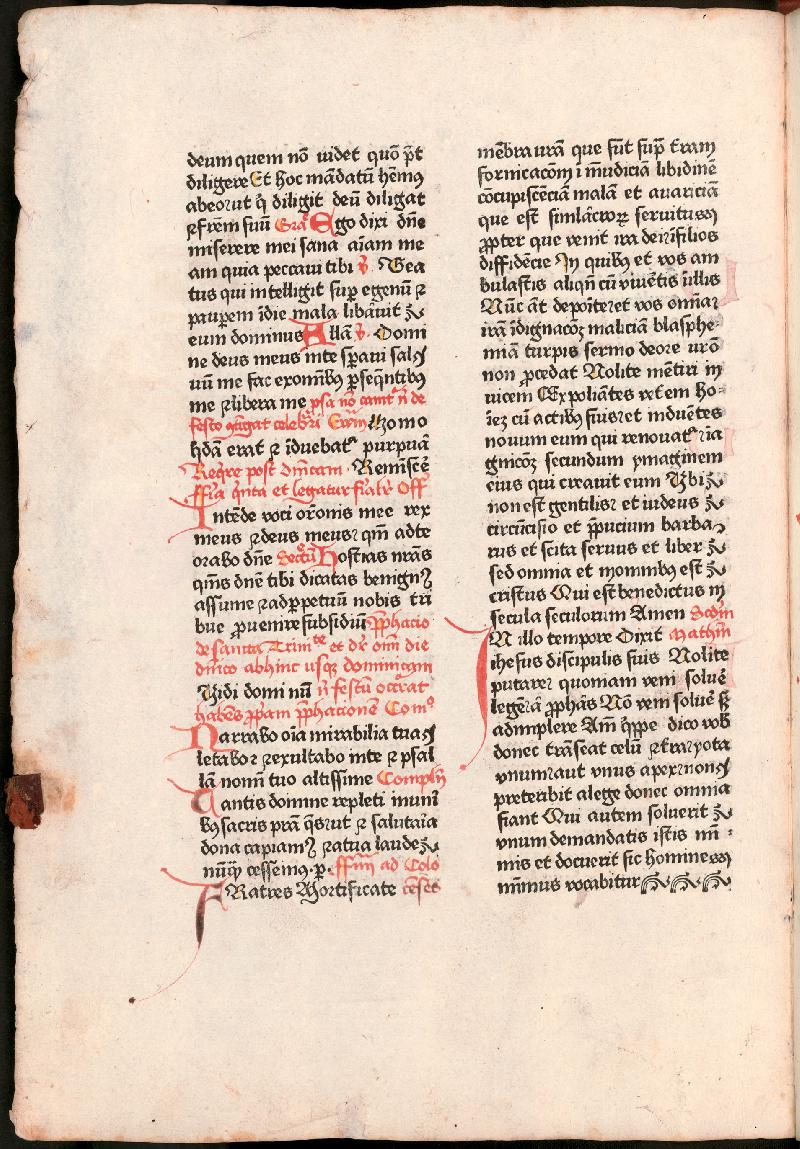 deum quem nō uidet quō p̄t
diligere Et hoc mādatū hēmꝰ
abeo vt q̄ diligit deū diligat
ꝛ frēm suū Gra Ego dixi dn̄e
miserere mei sana aīam me
am quia peccaui tibi v̄. Bea
tus qui intelligit sup̄ egenū ꝛ
paup̄em īdie mala libāuit
eum dominus Allā v̄. Domi
ne deus meus inte sp̄aui sal
uū me fac exomībꝰ p̄seq̄ntibꝰ
me ꝛ libera me
Homo
q̄dā erat ꝛ īduebatʳ purpuā
Reqre post dn̄icam. Remīscē
ffīa q̄nta et legatur Off
Intēde voci orōnis mee rex
meus ꝛ deus meus qm̄ adte
orabo dn̄e Sectū Hostias nrās
qm̄s dn̄e tibi dicatas benign
assume ꝛ adp̄petuū nobis tri
bue ꝓuenire subsidiū p̄phacio
de sancta Trinite et dr̄ om̄i die
dn̄ico abhinc usqꝫ dominicam
Vidi domi nū n̄ festū occ̄rat
habēs ꝓp̄am p̄phacionē Com
Narrabo oīa mirabilia tua
letabor ꝛ exultabo inte ꝛ psal
lā nomī tuo altissime Compln̄
Tantis domine repleti muni
bꝰ sacris pr̄a q̄s vt ꝛ salutaīa
dona capiam ꝛ atua laude
nūq̄ cessemꝰ. p. ad Colo
FRatres Mortificate
mēbra vrā que sūt sup̄ t̄ram
fornicacōm īmūdiciā libidinē
cōcupiscēciā malā et auariciā
que est simlacroꝝ seruitus
ꝓpter que venit ira dei in filios
diffidēcie In quibꝰ et vos am
bulastis aliqn̄ cū viuētis īillis
Nūc āt deponite et vos omīa
irā īdignacōꝫ maliciā blasphe
miā turpis sermo deore vrō
non ꝓcedat Nolite mētiri in
uicem Expoliātes vetem ho
īeꝫ cū actibꝰ suis et induētes
nouum eum qui renouatʳ ī a
gnicōꝫ secundum ymaginem
eius qui creauit eum Vbi
non est gentilis et iudeus
circūcisio et p̄pucium barba
rus et scita seruus et liber
sed omnia et inomnibus est
cristus Qui est benedictus in
secula seculorum Amen Scdm̄
IN illo tempore Dixit Mathm̄
ihesus discipulis suis Nolite
putare quoniam veni soluē
legē ā ꝓphās Nō veni soluē s
adimplere Am̄ q̄ppe dico vob
donec trāseat celū ꝛ t̄ra yota
vnum aut vnus apex non
preteribit alege donec omnia
fiant Qui autem soluerit
vnum demandatis istis mī
mis et docuerit sic homines
mīmus vocabitur